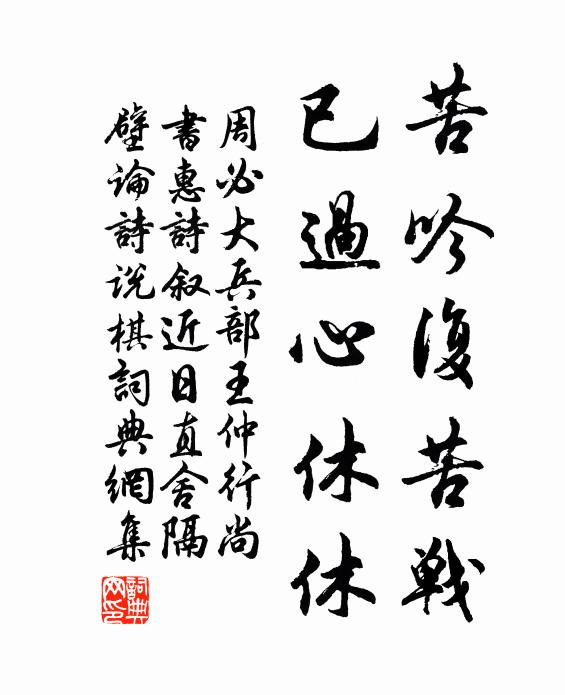 苦吟復苦戰
已過心休休
周必大兵部王仲行尚
書惠詩叙近日直舍隔
壁論詩说棋詞典網集
詞典
网印